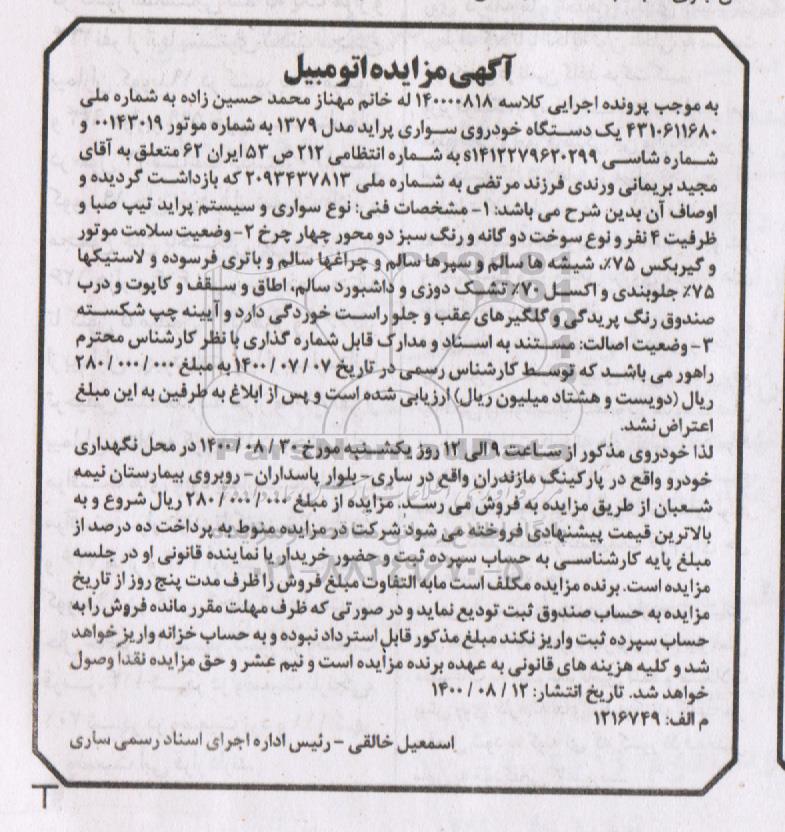 آگهی مزایده اتومبیل
به موجب پرونده اجرایی کلاسه ۱۴۰۰۰۰۸۱۸ له خانم مهناز محمد حسین زاده به شماره ملی
۴۳۱۰۶۱۱۶۸۰ یک دستگاه خودروی سواری پراید مدل ۱۳۷۹ به شماره موتور ۰۰۱۴۳۰۱۹ و
شماره شاسی s۱۴۱۲۲۷۹۶۲۰۲۹۹ به شماره انتظامی ۲۱۲ ص ۵۳ ایران ۶۲ متعلق به آقای
مجید بریمانی ورندی فرزند مرتضی به شماره ملی ۲۰۹۳۴۳۷۸۱۳ که بازداشت گردیده و
اوصاف آن بدین شرح می باشد: ۱- مشخصات فنی: نوع سواری و سیستم پراید تیپ صبا و
ظرفیت ۴ نفر و نوع سوخت دو گانه و رنگ سبز دو محور چهار چرخ ۲- وضعیت سلامت موتور
و گیربکس ۷۵٪، شیشه ها سالم و سپرها سالم و چراغها سالم و باتری فرسوده و لاستیکها
۷۵٪ جلوبندی و اکسل ۷۰٪ تشک دوزی و داشبورد سالم، اطاق و سقف و کاپوت و درب
صندوق رنگ پریدگی و گلگیرهای عقب و جلو راست خوردگی دارد و آیینه چپ شکسته
۳- وضعیت اصالت: مستند به اسناد و مدارک قابل شماره گذاری با نظر کارشناس محترم
راهور می باشد که توسط کارشناس رسمی در تاریخ ۱۴۰۰/۰۷/۰۷ به مبلغ ۲۸۰/۰۰۰/۰۰۰
ریال (دویست و هشتاد میلیون ریال) ارزیابی شده است و پس از ابلاغ به طرفین به این مبلغ
اعتراض نشد.
لذا خودروی مذکور از ساعت ۹ الی ۱۲ روز یکشنبه مورخ ۱۴۰۰/۰۸/۳۰ در محل نگهداری
خودرو واقع در پارکینگ مازندران واقع در ساری- بلوار پاسداران- روبروی بیمارستان نیمه
شعبان از طریق مزایده به فروش می رسد. مزایده از مبلغ ۲۸۰/۰۰۰/۰۰۰ ریال شروع و به
بالاترین قیمت پیشنهادی فروخته می شود شرکت در مزایده منوط به پرداخت ده درصد از
مبلغ پایه کارشناسی به حساب سپرده ثبت و حضور خریدار یا نماینده قانونی او در جلسه
مزایده است. برنده مزایده مکلف است مابه التفاوت مبلغ فروش را ظرف مدت پنج روز از تاریخ
مزایده به حساب صندوق ثبت تودیع نماید و در صورتی که ظرف مهلت مقرر مانده فروش را به
حساب سپرده ثبت واریز نکند مبلغ مذکور قابل استرداد نبوده و به حساب خزانه واریز خواهد
شد و کلیه هزینه های قانونی به عهده برنده مزایده است و نیم عشر و حق مزایده نقدا وصول
خواهد شد. تاریخ انتشار: ۱۴۰۰/۰۸/۱۳
م الف: ۱۲۱۶۷۴۹
اسمعیل خالقی - رئیس اداره اجرای اسناد رسمی ساری